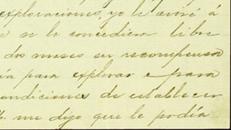 exploraciones, yo le avisé á
a se le concediera libre
dos meses su recompensa
ia para explorar e para
ondiciones de establecer
me dijo que le podía